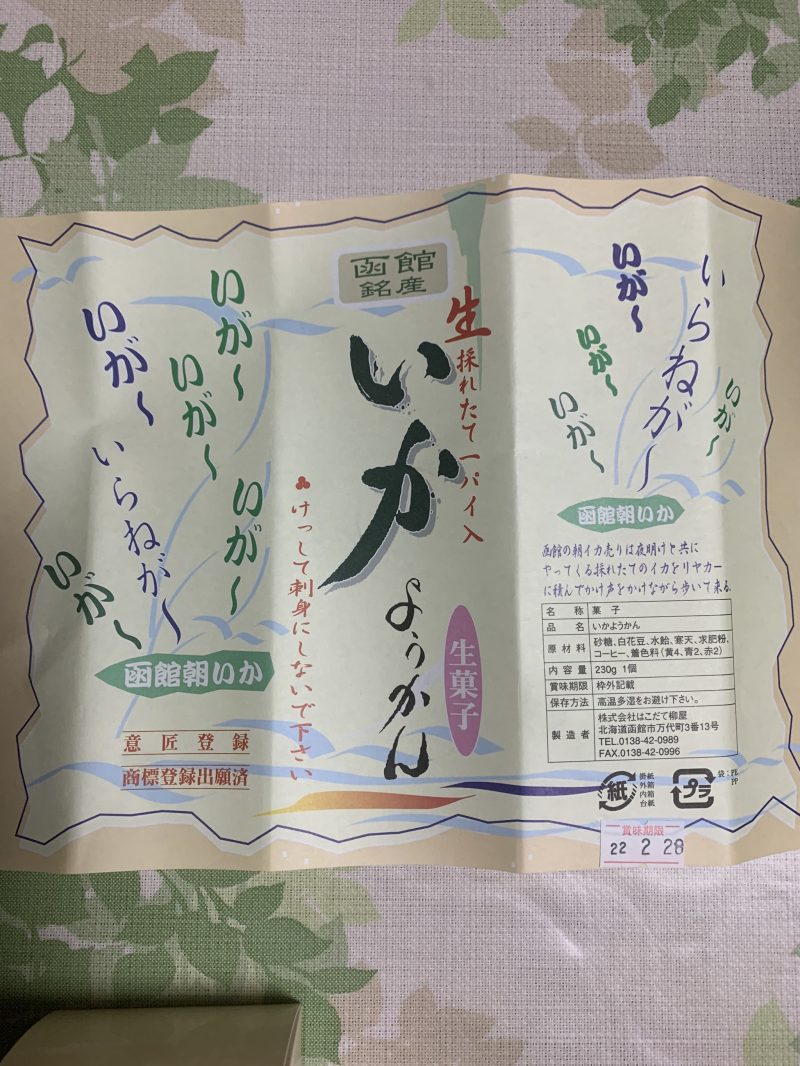 函館
銘産
生
採れたて一パイ入
いか
ようかん
生菓子
けっして刺身にしないで下さい
いが〜
いが〜
いが〜
いらねが〜
いが〜
いが〜
函館朝いか
意匠登録
商標登録出願済
いらねが〜
いが〜
いが〜
いが〜
いが〜
函館朝いか
函館の朝イカ売りは夜明けと共に
やってくる採れたてのイカをリヤカー
に積んでかけ声をかけながら歩いて来る.
名称 菓子
品名 いかようかん
原材料 砂糖、白花豆、水飴、寒天、求肥粉、
コーヒー、着色料(黄4、青2、赤2)
内容量 230g 1個
賞味期限 枠外記載
保存方法 高温多湿をお避け下さい。
製造者 株式会社はこだて柳屋
北海道函館市万代町3番13号
TEL.0138-42-0989
FAX.0138-42-0996
紙
掛紙
外箱
内箱
台紙
プラ
袋:PE
PP
賞味期限
22 2 28